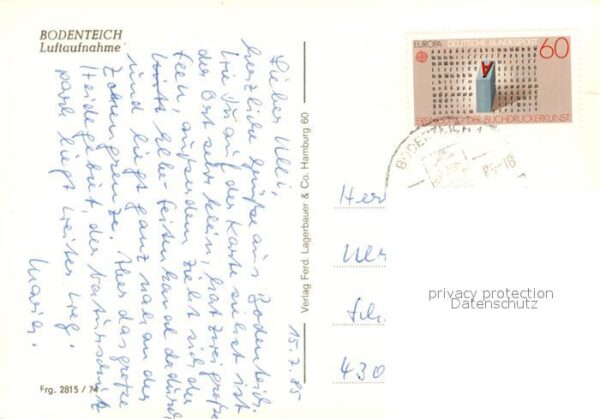 BODENTEICH
Luftaufnahme
15.7.85
Lieber Uli,
herzliche Grüße aus Bodenteich.
Wie Du auf der Karte siehst ist
der Ort sehr klein, hat zwei große
Seen, außerdem zieht sich der
Elbe-Seitenkanal dadurch
und liegt ganz nah an der
Zonengrenze. Aber das große
Heidegebiet, der Naturschutz
park liegt weiter weg.
Maria.
Frg. 2815 / 74
Verlag Ferd. Lagerbauer & Co. Hamburg 60
EUROPA DEUTSCHE BUNDESPOST
60
ERFINDUNG DER BUCHDRUCKERKUNST
BODENTEICH 1
-18
Her
430
privacy protection
Datenschutz